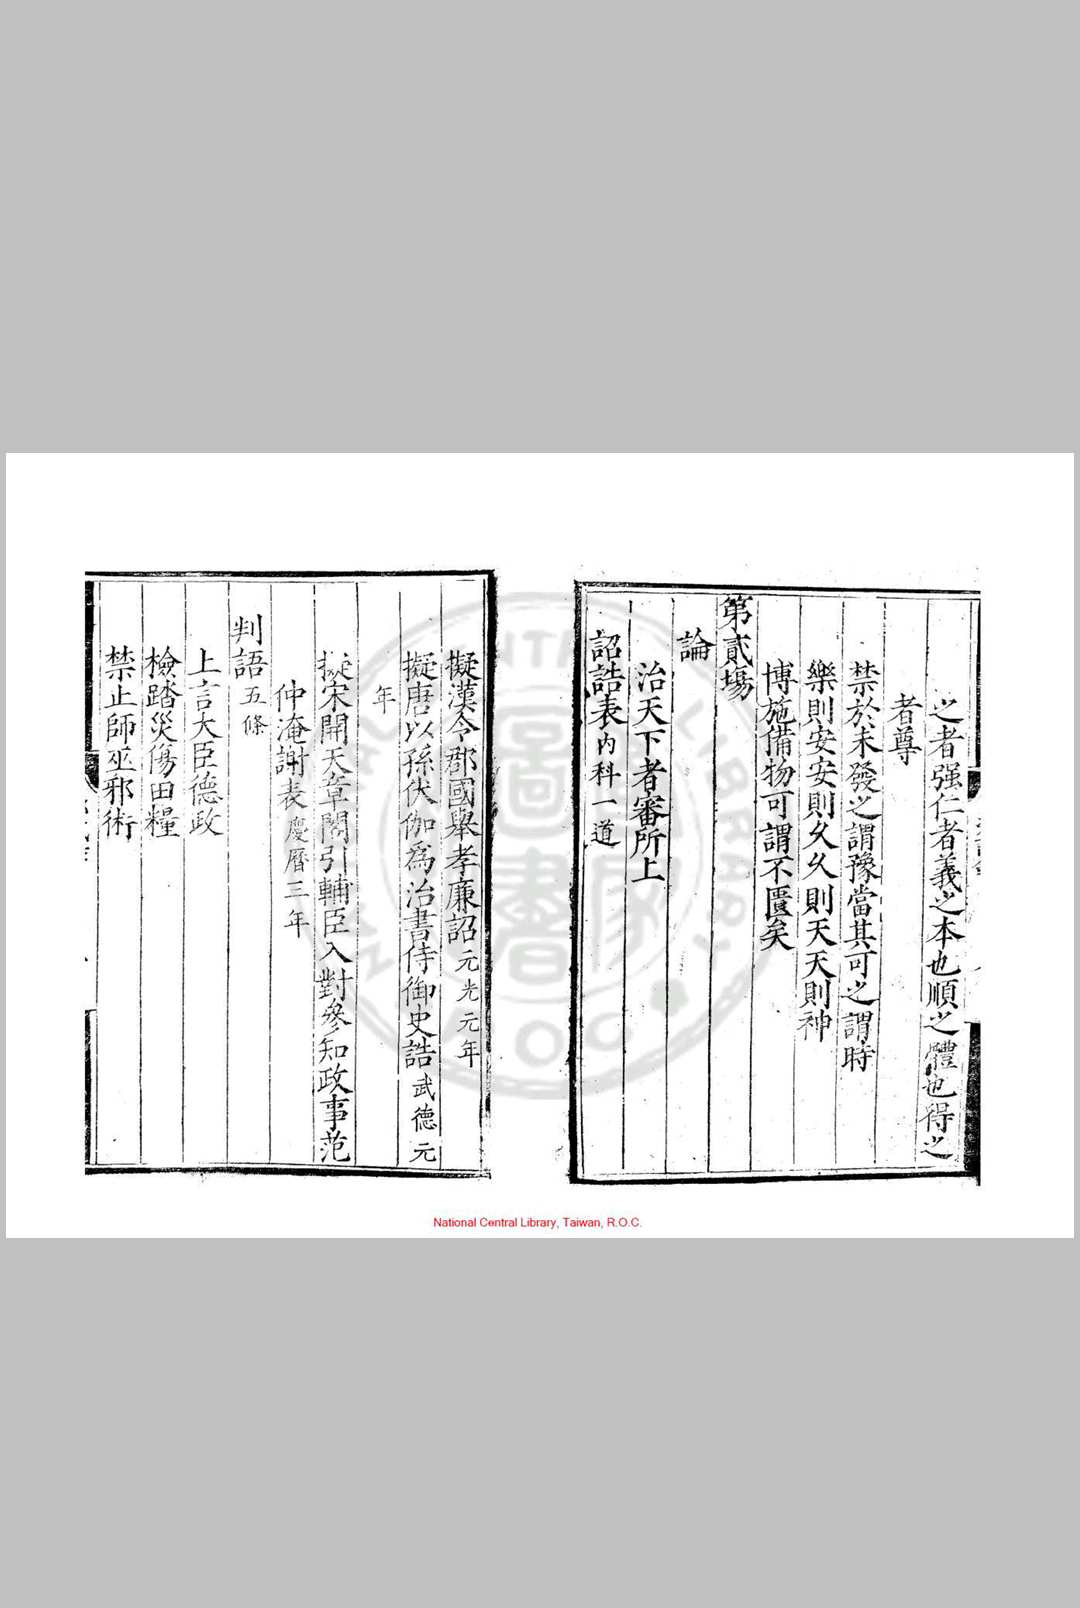 之者强仁者義之本也順之體也得之
者尊
禁於未發之謂豫當其可之謂時
樂則安安則久久則天天則神
博施備物可謂不匱矣
第貳場
論
治天下者審所上
詔誥表内科一道
擬漢令郡國舉孝廉詔元光元年
擬唐以孫伏伽爲治書侍御史誥武德元
年
擬宋開天章閣引輔臣入對參知政事范
仲淹謝表慶曆三年
判語五條
上言大臣德政
檢踏災傷田糧
禁止師巫邪術
National Central Library, Taiwan, R.O.C.